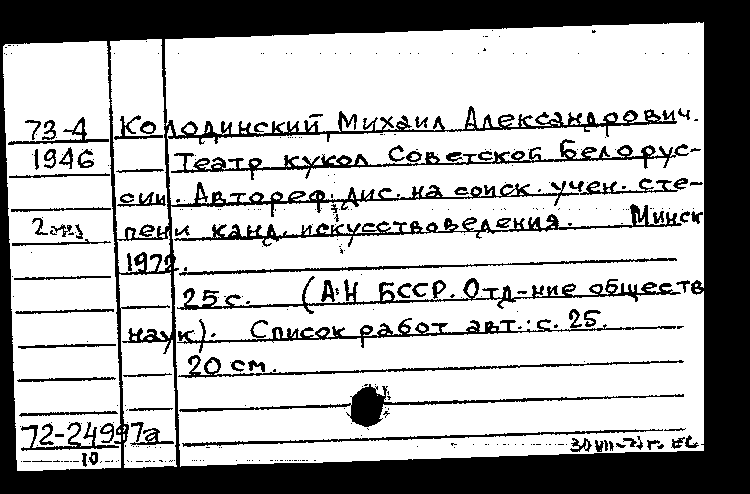 73-4 Колодинский, Михаил Александрович.
1946 Театр кукол Советской Белорус-
сии. Автореф. дис. на соиск. учен. сте-
2 экз. пени канд. искусствоведения. Минск
1972.
25 с. (АН БССР. Отд-ние обществ
наук). Список работ авт.: с. 25.
20 см.
72-24997а
10